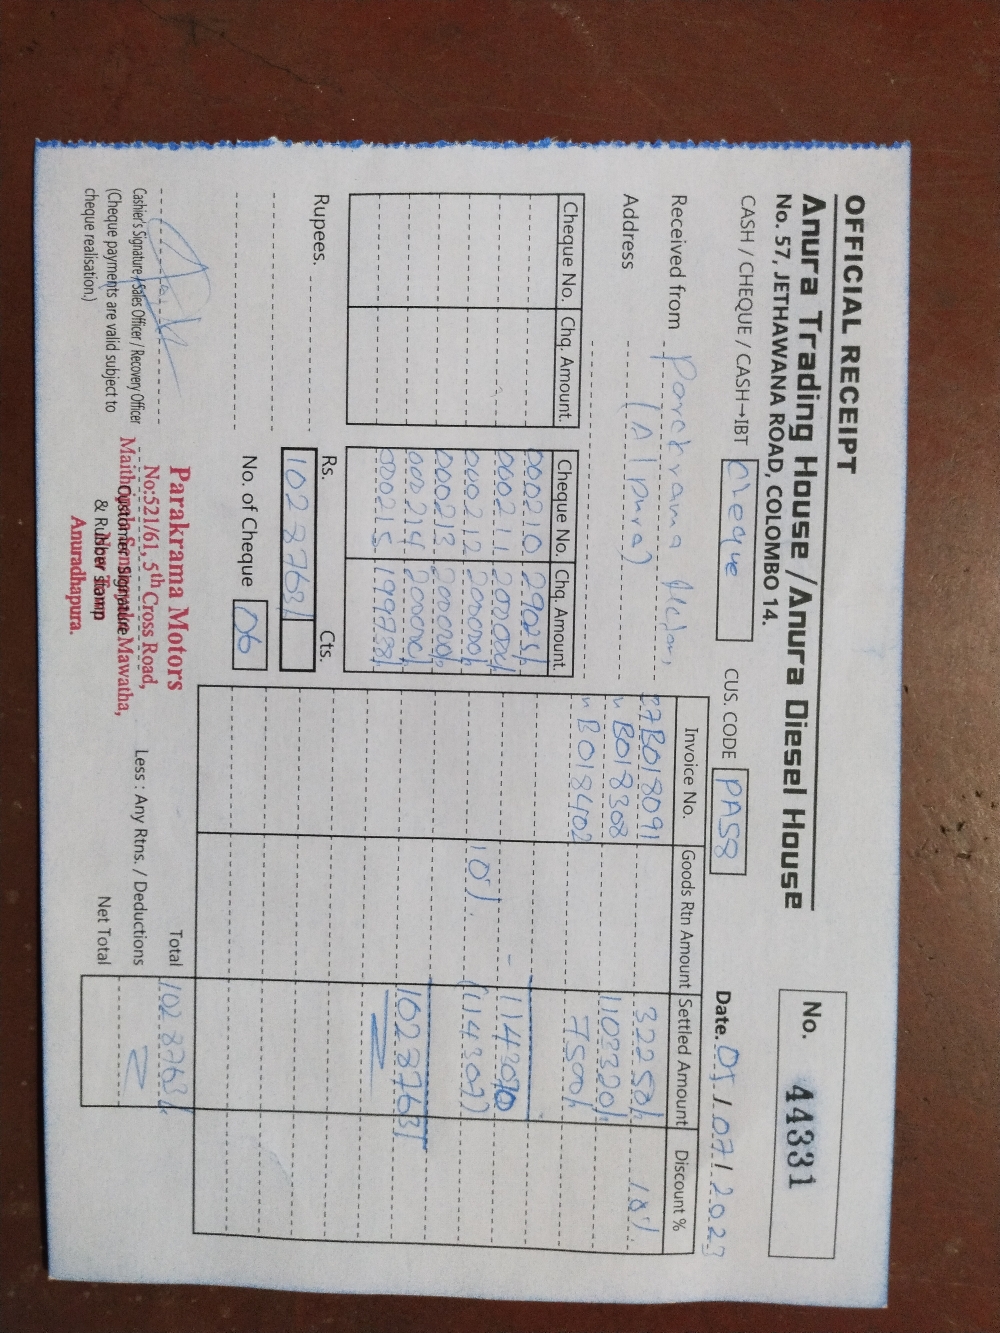 OFFICIAL RECEIPT
Anura Trading House / Anura Diesel House
No. 57, JETHAWANA ROAD, COLOMBO 14.
No. 44331
CASH / CHEQUE / CASH→IBT Cheque
CUS. CODE PA58
Date. 05 / 07 / 2023
Received from
Address (A' pura)
Cheque No. Chq. Amount.
Cheque No. Chq. Amount.
000210 29025/-
000211 200000/-
000212 200000/-
000213 200000/-
000214 200000/-
000215 199738/-
Invoice No. Goods Rtn Amount Settled Amount Discount %
37B018091 32250/- 10%.
" B018308 1103320/-
" B018402 7500/-
- 1143070
10%. (114307)
1028763/-
Rupees.
Rs. Cts.
1028763/-
No. of Cheque 06
Total 1028763/-
Less : Any Rtns. / Deductions
Net Total
Cashier's Signature / Sales Officer / Recovery Officer
(Cheque payments are valid subject to
cheque realisation.)
Customer Signature
& Rubber stamp
Parakrama Motors
No:521/61, 5th Cross Road,
Mawatha,
Anuradhapura.